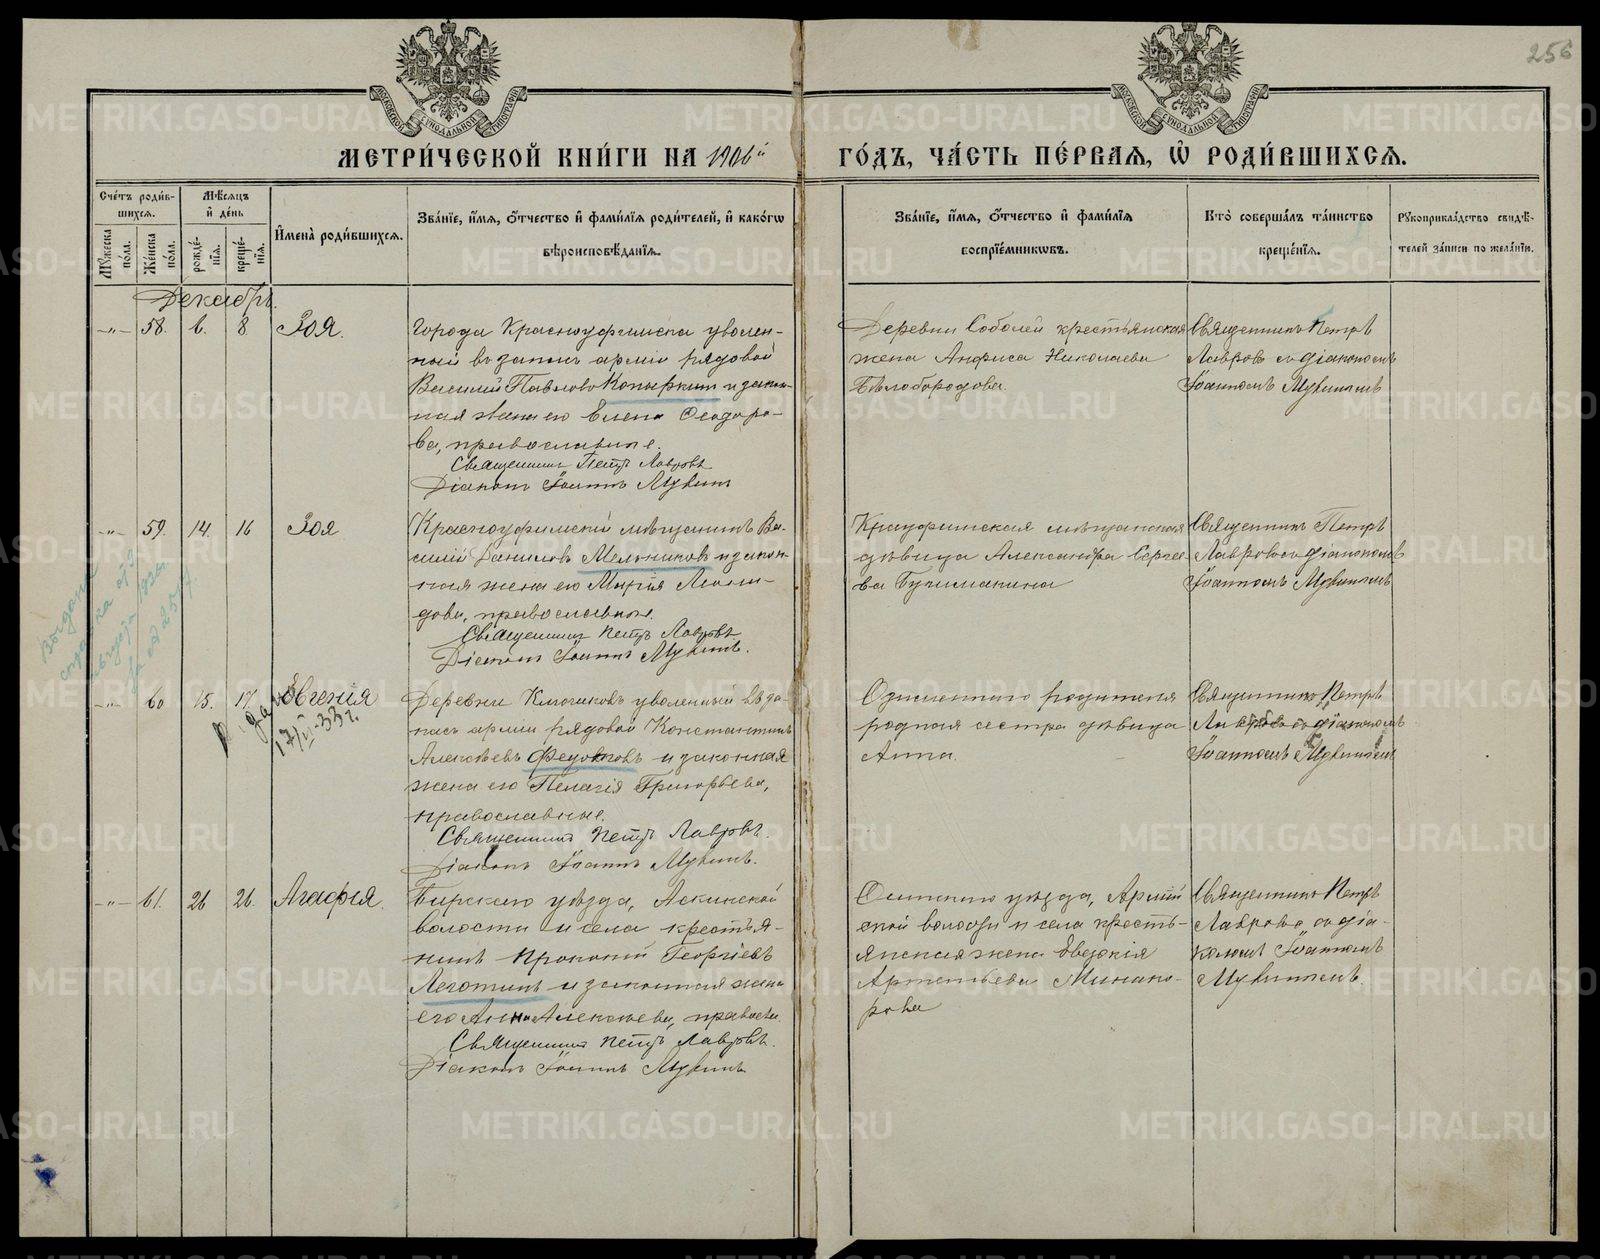 256
МЕТРИ́ЧЕСКОЙ КНИ́ГИ НА 1906й ГО́ДЪ, ЧА́СТЬ ПЕ́РВАѦ, Ѡ҆ РОДИ́ВШИХСѦ.
Сче́тъ роди́в-
шихсѧ.
Мꙋ́жеска по́ла.
Же́нска по́ла.
Мѣ́сѧцъ
и҆ де́нь
рожде́-
нїѧ.
креще́-
нїѧ.
И҆мена̀ роди́вшихсѧ.
Зва́нїе, и҆́мѧ, ѻ҆́тчество и҆ фами́лїѧ роди́телей, и҆ како́гѡ
вѣроисповѣ́данїѧ.
Зва́нїе, и҆́мѧ, ѻ҆́тчество и҆ фами́лїѧ
воспрїе́мникѡвъ.
Кто̀ соверша́лъ та́инство
креще́нїѧ.
Рꙋкоприкла́дство свидѣ́-
телей за́писи по жела́нїю.
Декабрь.
-"- 58. 6. 8 Зоя.
Города Красноуфимска уволен-
ный въ запасъ армии рядовой
Василий Павловъ Копыркин и закон-
ная жена его Елена Феодоро-
ва, православные.
Священникъ Петръ Лавровъ
Діаконъ Іоаннъ Мукинъ
Деревни Соболей крестьянская
жена Анфиса Николаева
Бѣлобородова.
Священникъ Петръ
Лавровъ съ діакономъ
Іоанномъ Мукинымъ
-"- 59. 14. 16 Зоя
Красноуфимскій мѣщанинъ Ва-
силій Даниловъ Мельниковъ и закон-
ная жена его Марія Леони-
дова, православные.
Священникъ Петръ Лавровъ
Діаконъ Іоаннъ Мукинъ.
Красноуфимская мѣщанская
дѣвица Александра Сергее-
ва
Священникъ Петръ
Лавровъ съ діакономъ
Іоанномъ Мукинымъ
Выдана
справка
-"- 60 15. 17. Евгенія
17/II-33 г.
Деревни Ключиковъ уволенный въ за-
пасъ армии рядовой Константинъ
Алексѣевъ Федотовъ и законная
жена его Пелагія Григорьева,
православные.
Священникъ Петръ Лавровъ.
Діаконъ Іоаннъ Мукинъ.
Означеннаго родителя
родная сестра дѣвица
Анна.
Священникъ Петръ
Лавровъ съ діакономъ
Іоанномъ Мукинымъ
-"- 61. 26 26. Агафія.
Бирскаго уѣзда, Аскинской
волости и села крестья-
нинъ Прокопій Георгіевъ
Леготинъ и законная жена
его Анна Алексѣева, правосл.
Священникъ Петръ Лавровъ.
Діаконъ Іоаннъ Мукинъ
Осинскаго уѣзда,
ской волости и села кресть-
янская жена Евдокія
Артемьева Минако-
рова
Священникъ Петръ
Лавровъ съ діа-
кономъ Іоанномъ
Мукинымъ.
METRIKI.GASO-URAL.RU